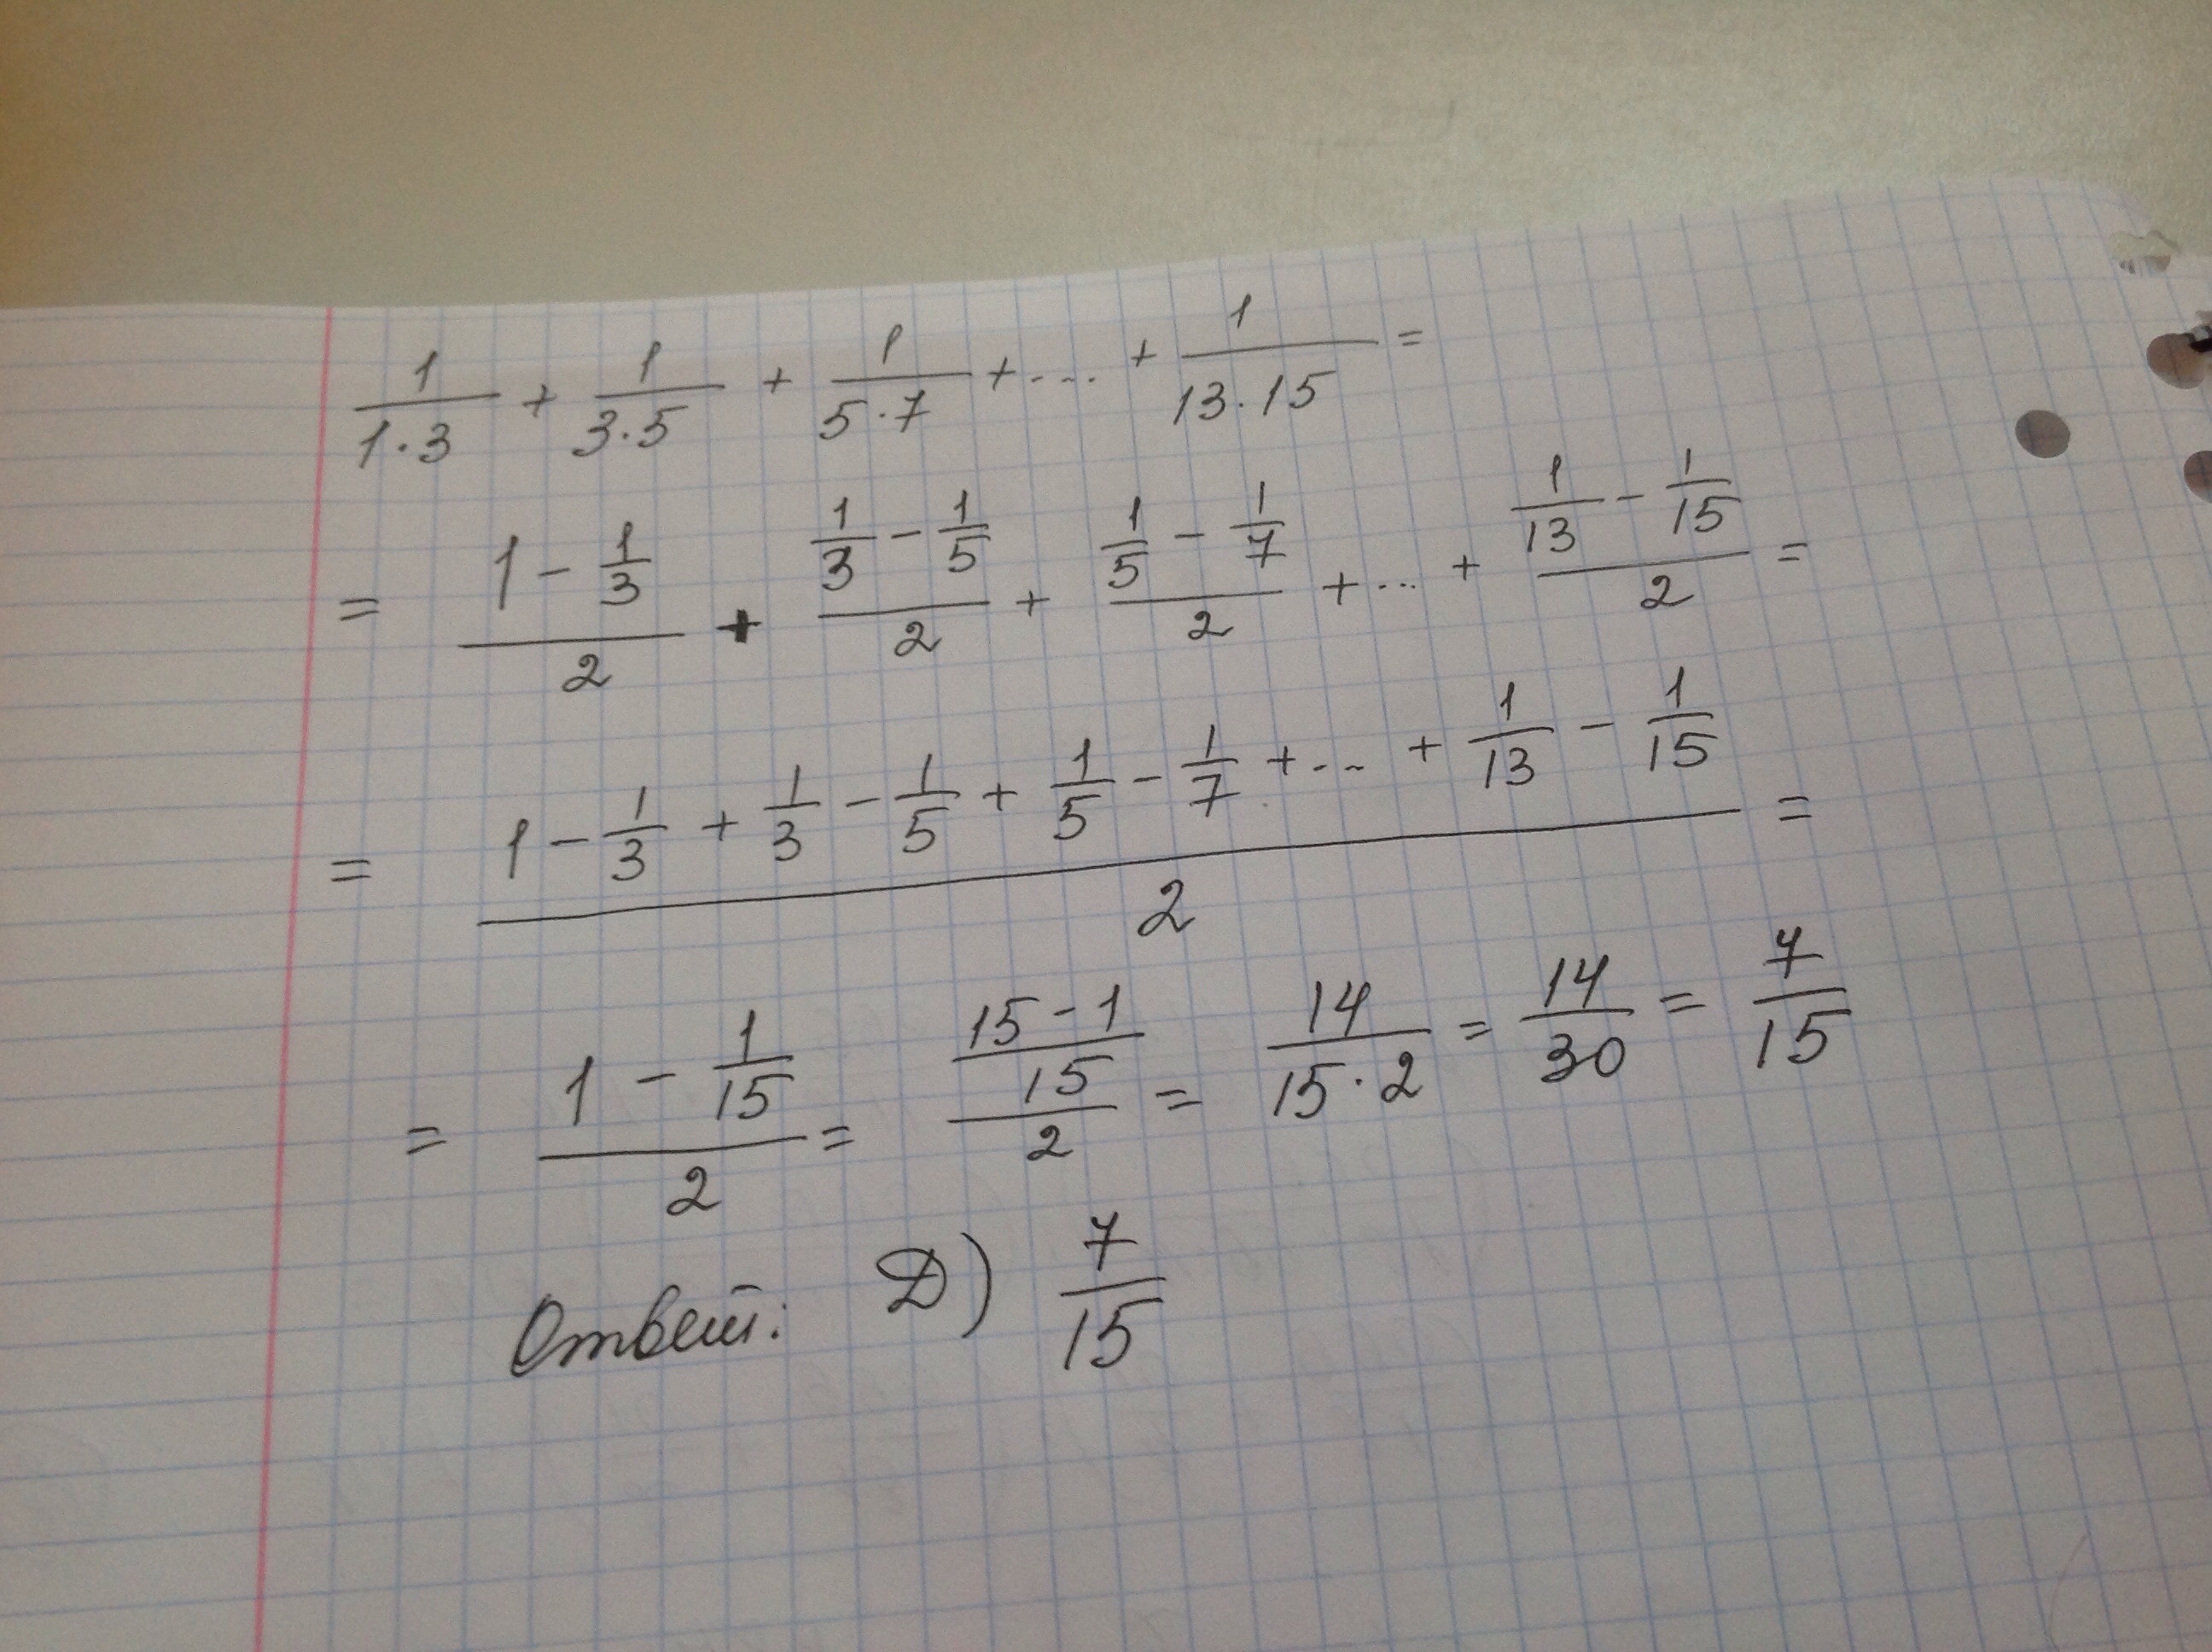 1/(1·3) + 1/(3·5) + 1/(5·7) + ... + 1/(13·15) =
= (1 - 1/3)/2 + (1/3 - 1/5)/2 + (1/5 - 1/7)/2 + ... + (1/13 - 1/15)/2 =
= (1 - 1/3 + 1/3 - 1/5 + 1/5 - 1/7 + ... + 1/13 - 1/15)/2 =
= (1 - 1/15)/2 = ((15 - 1)/15)/2 = 14/(15·2) = 14/30 = 7/15
Ответ: Д) 7/15